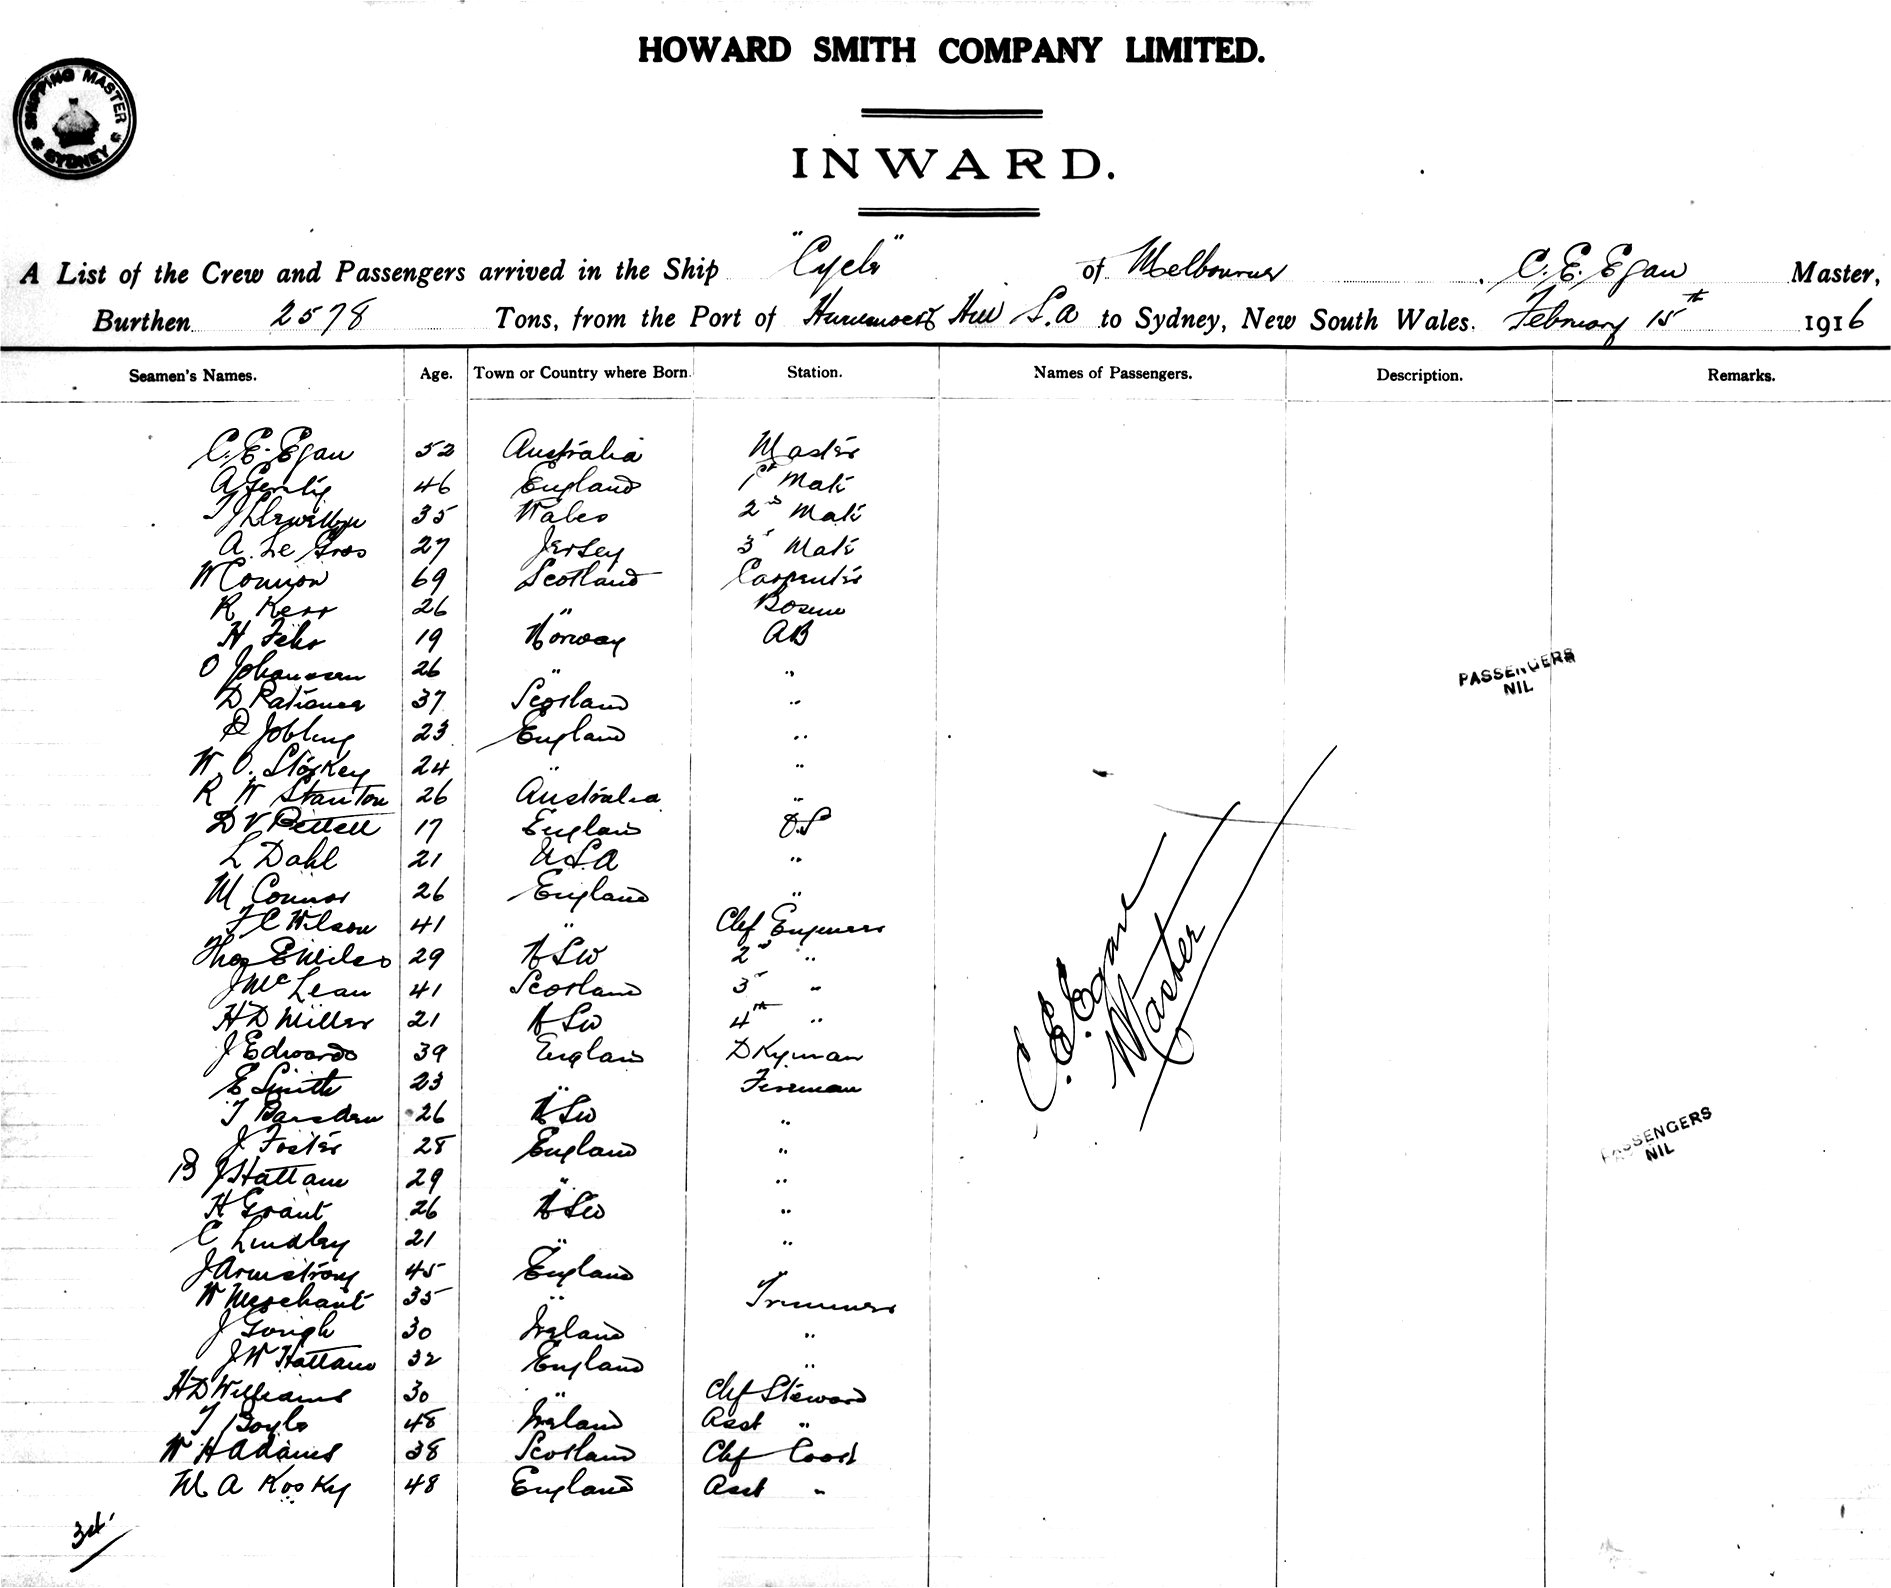 HOWARD SMITH COMPANY LIMITED.
SHIPPING MASTER
SYDNEY
INWARD.
A List of the Crew and Passengers arrived in the Ship "Cycle" of Melbourne. C. E. Egan Master,
Burthen 2578 Tons, from the Port of Hummock Hill S.A to Sydney, New South Wales. February 15th 1916
Seamen's Names. Age. Town or Country where Born. Station. Names of Passengers. Description. Remarks.
C. E. Egan 52 Australia Master
A 46 England 1st Mate
T J Llewellyn 35 Wales 2nd Mate
A. Le Gros 27 Jersey 3d Mate
W Connon 69 Scotland Carpenter
R Kerr 26 " Bosun
H Fehr 19 Norway AB
O Johannsen 26 " "
D Patience 37 Scotland "
R Jobling 23 England "
W. O. Storkey 24 " "
R W Stanton 26 Australia "
D V Bettell 17 England O.S
L Dahl 21 U.S.A "
M Connor 26 England "
F C Wilson 41 " Chf Engineer
Thos E Miles 29 NSW 2nd "
J McLean 41 Scotland 3d "
H D Miller 21 NSW 4th "
J Edwards 39 England DKyman
E Smith 23 " Fireman
T Barsden 26 NSW "
J Foster 28 England "
B J Hattam 29 " "
H Grant 26 NSW "
C Lindley 21 " "
J Armstrong 45 England "
W Merchant 35 " Trimmers
J Gough 30 Ireland "
J W Hattam 32 England "
H D Williams 30 " Chf Steward
T Boyle 48 Ireland Asst "
W H Adams 38 Scotland Chf Cook
M A Kosky 48 England Asst "
34
PASSENGERS
NIL
C. E. Egan
Master
PASSENGERS
NIL